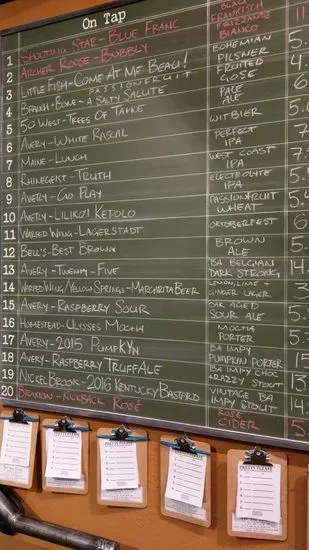 On Tap
1 Shooting Star - Blue Franc Blau Frankisch 11
2 Archer Roose - Bubbly Frizzante Bianco
3 Little Fish - Come At Me Beau! Bohemian Pilsner 5.
4 Branch + Bone - A Salty Salute Passionfruit Fruited Gose 4.
5 50 West - Trees Of Tahoe Pale Ale
6 Avery - White Rascal Witbier 5.
7 Maine - Lunch Perfect IPA 7.
8 Rhinegeist - Truth West Coast IPA 7.
9 Avery - Go Play Electrolyte IPA 5.
10 Avery - Liliko'i Kepolo Passionfruit Wheat 5.4
11 Warped Wing - Lagerstadt Oktoberfest 6
12 Bell's - Best Brown Brown Ale 5.
13 Avery - Twenty-Five BA Belgian Dark Strong 14.
14 Warped Wing/Yellow Springs - Margarita Beer Lemon, Lime + Ginger Lager 3
15 Avery - Raspberry Sour Oak Aged Sour Ale 5.
16 Homestead - Ulysses Mocha Mocha Porter 5.
17 Avery - 2015 Pumpkyn BA Impy Pumpkin Porter 15
18 Avery - Raspberry Truffale BA Impy Choc Razzy Stout 13
19 Nickel Brook - 2016 Kentucky Bastard Vintage BA Impy Stout 14.
20 Braxton - Kickback Rosé Rosé Cider 5.
PRETTY PLEASE
PRETTY PLEASE
PRETTY PLEASE
PRETTY PLEASE